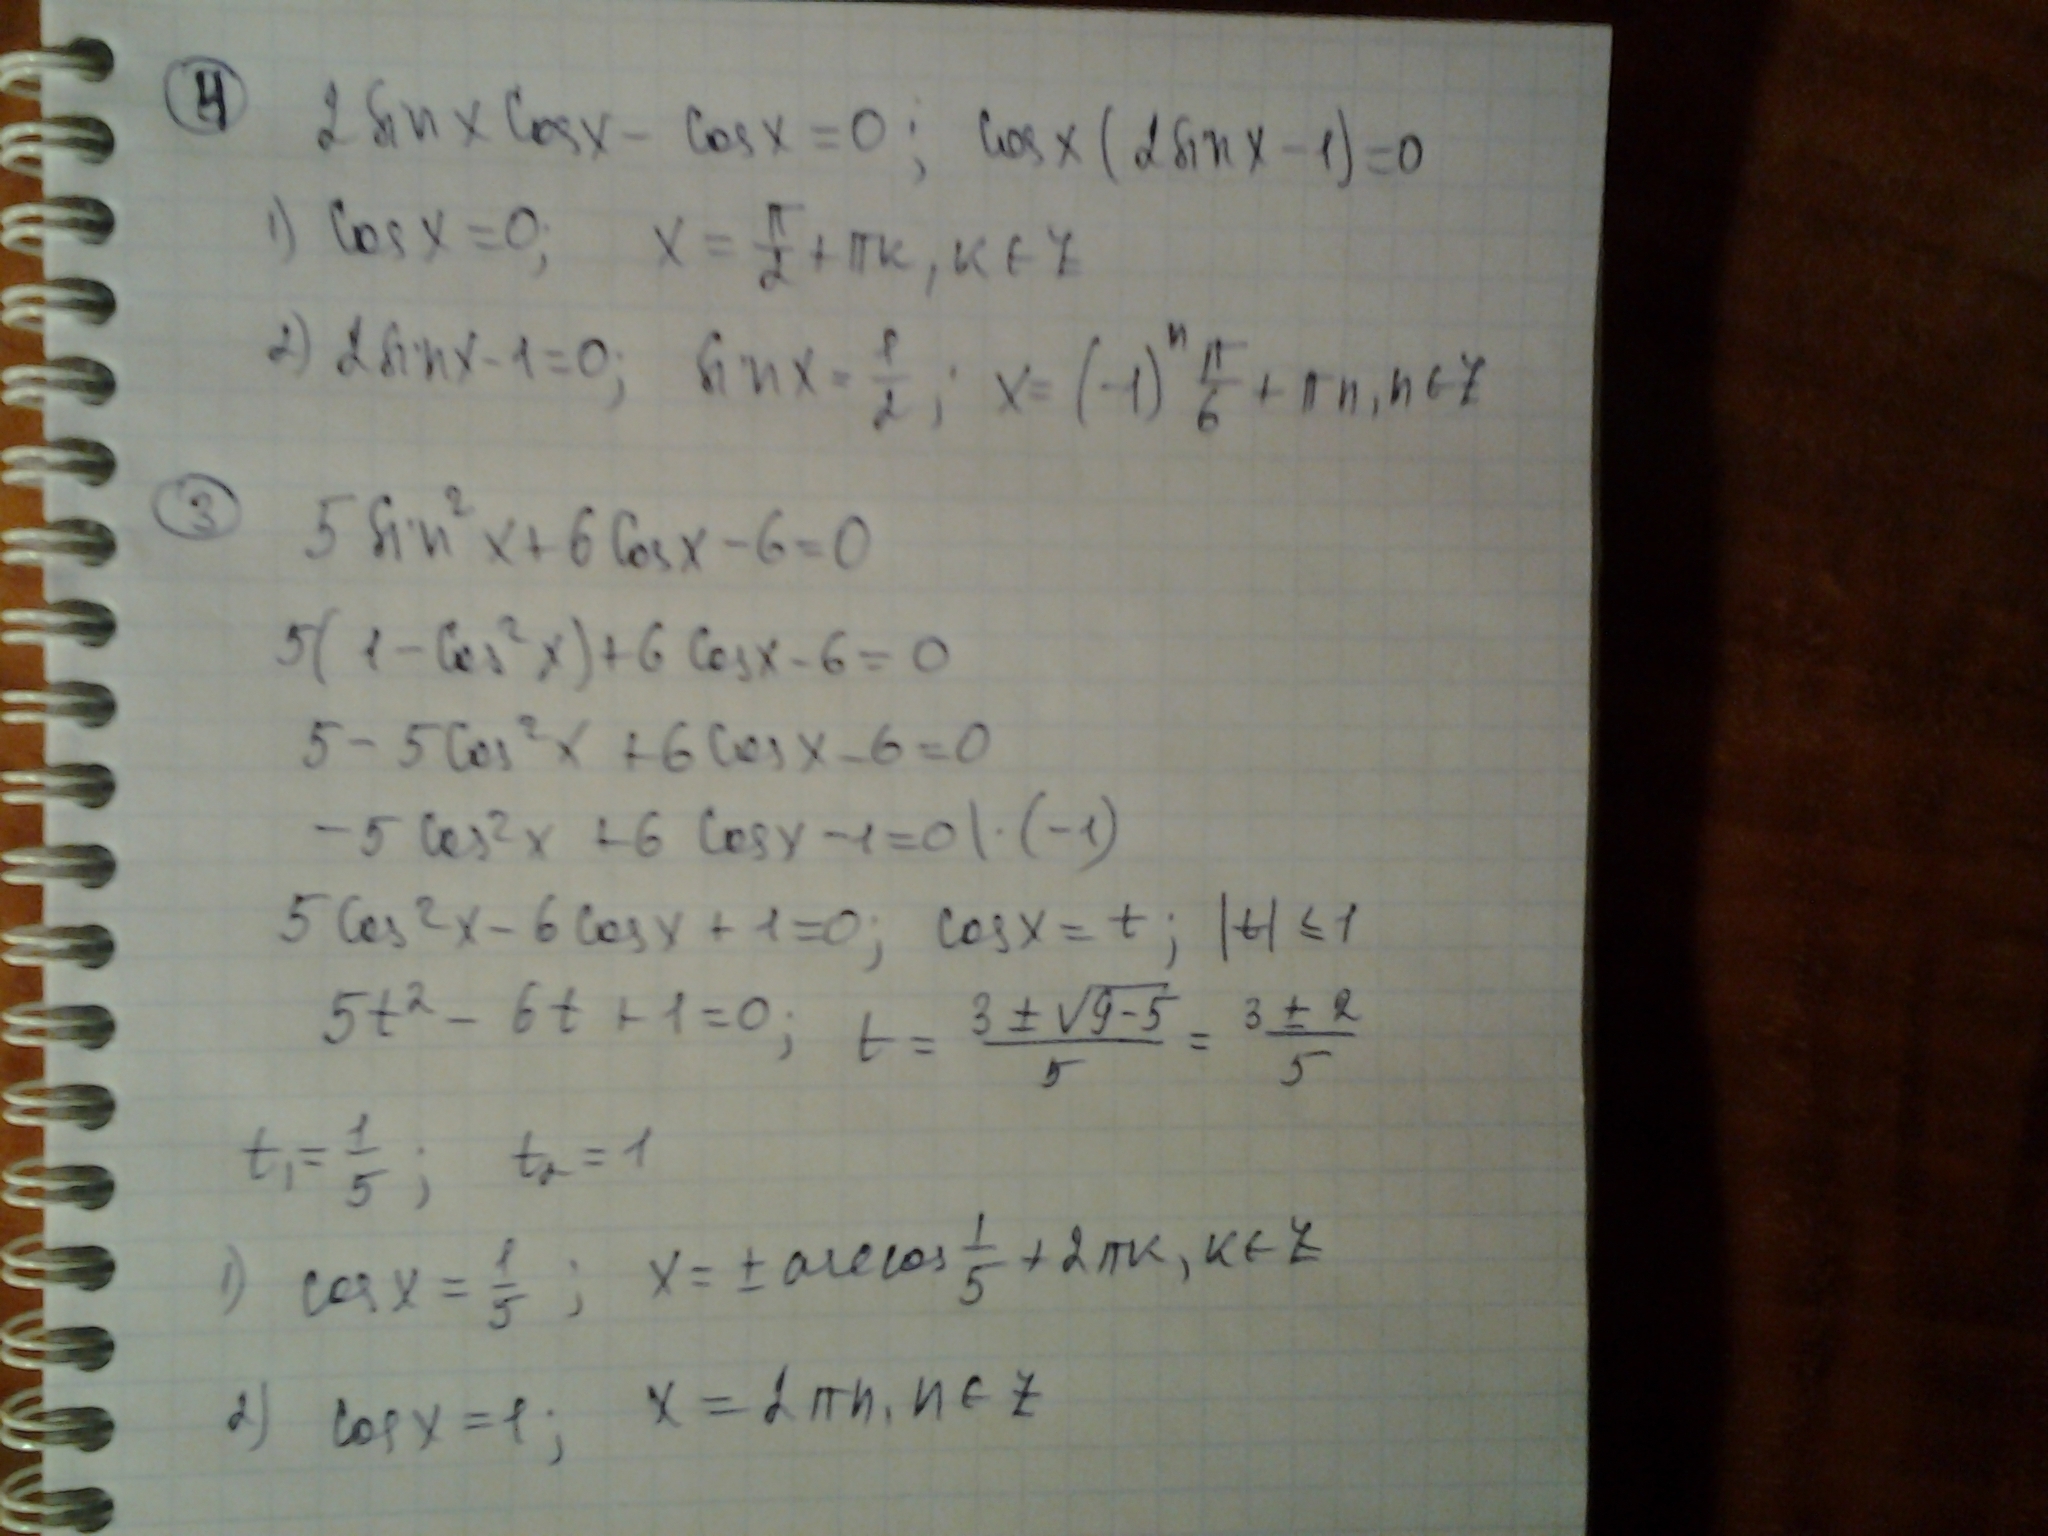 ④ 2 sin x cos x - cos x = 0; cos x (2 sin x - 1) = 0
1) cos x = 0; x = π/2 + πк, к ∈ Z
2) 2 sin x - 1 = 0; sin x = 1/2; x = (-1)ⁿ π/6 + πn, n ∈ Z
③ 5 sin² x + 6 cos x - 6 = 0
5(1 - cos² x) + 6 cos x - 6 = 0
5 - 5 cos² x + 6 cos x - 6 = 0
-5 cos² x + 6 cos x - 1 = 0 | · (-1)
5 cos² x - 6 cos x + 1 = 0; cos x = t; |t| ≤ 1
5t² - 6t + 1 = 0; t = (3 ± √(9-5))/5 = (3 ± 2)/5
t₁ = 1/5; t₂ = 1
1) cos x = 1/5; x = ± arccos 1/5 + 2πк, к ∈ Z
2) cos x = 1; x = 2πn, n ∈ Z